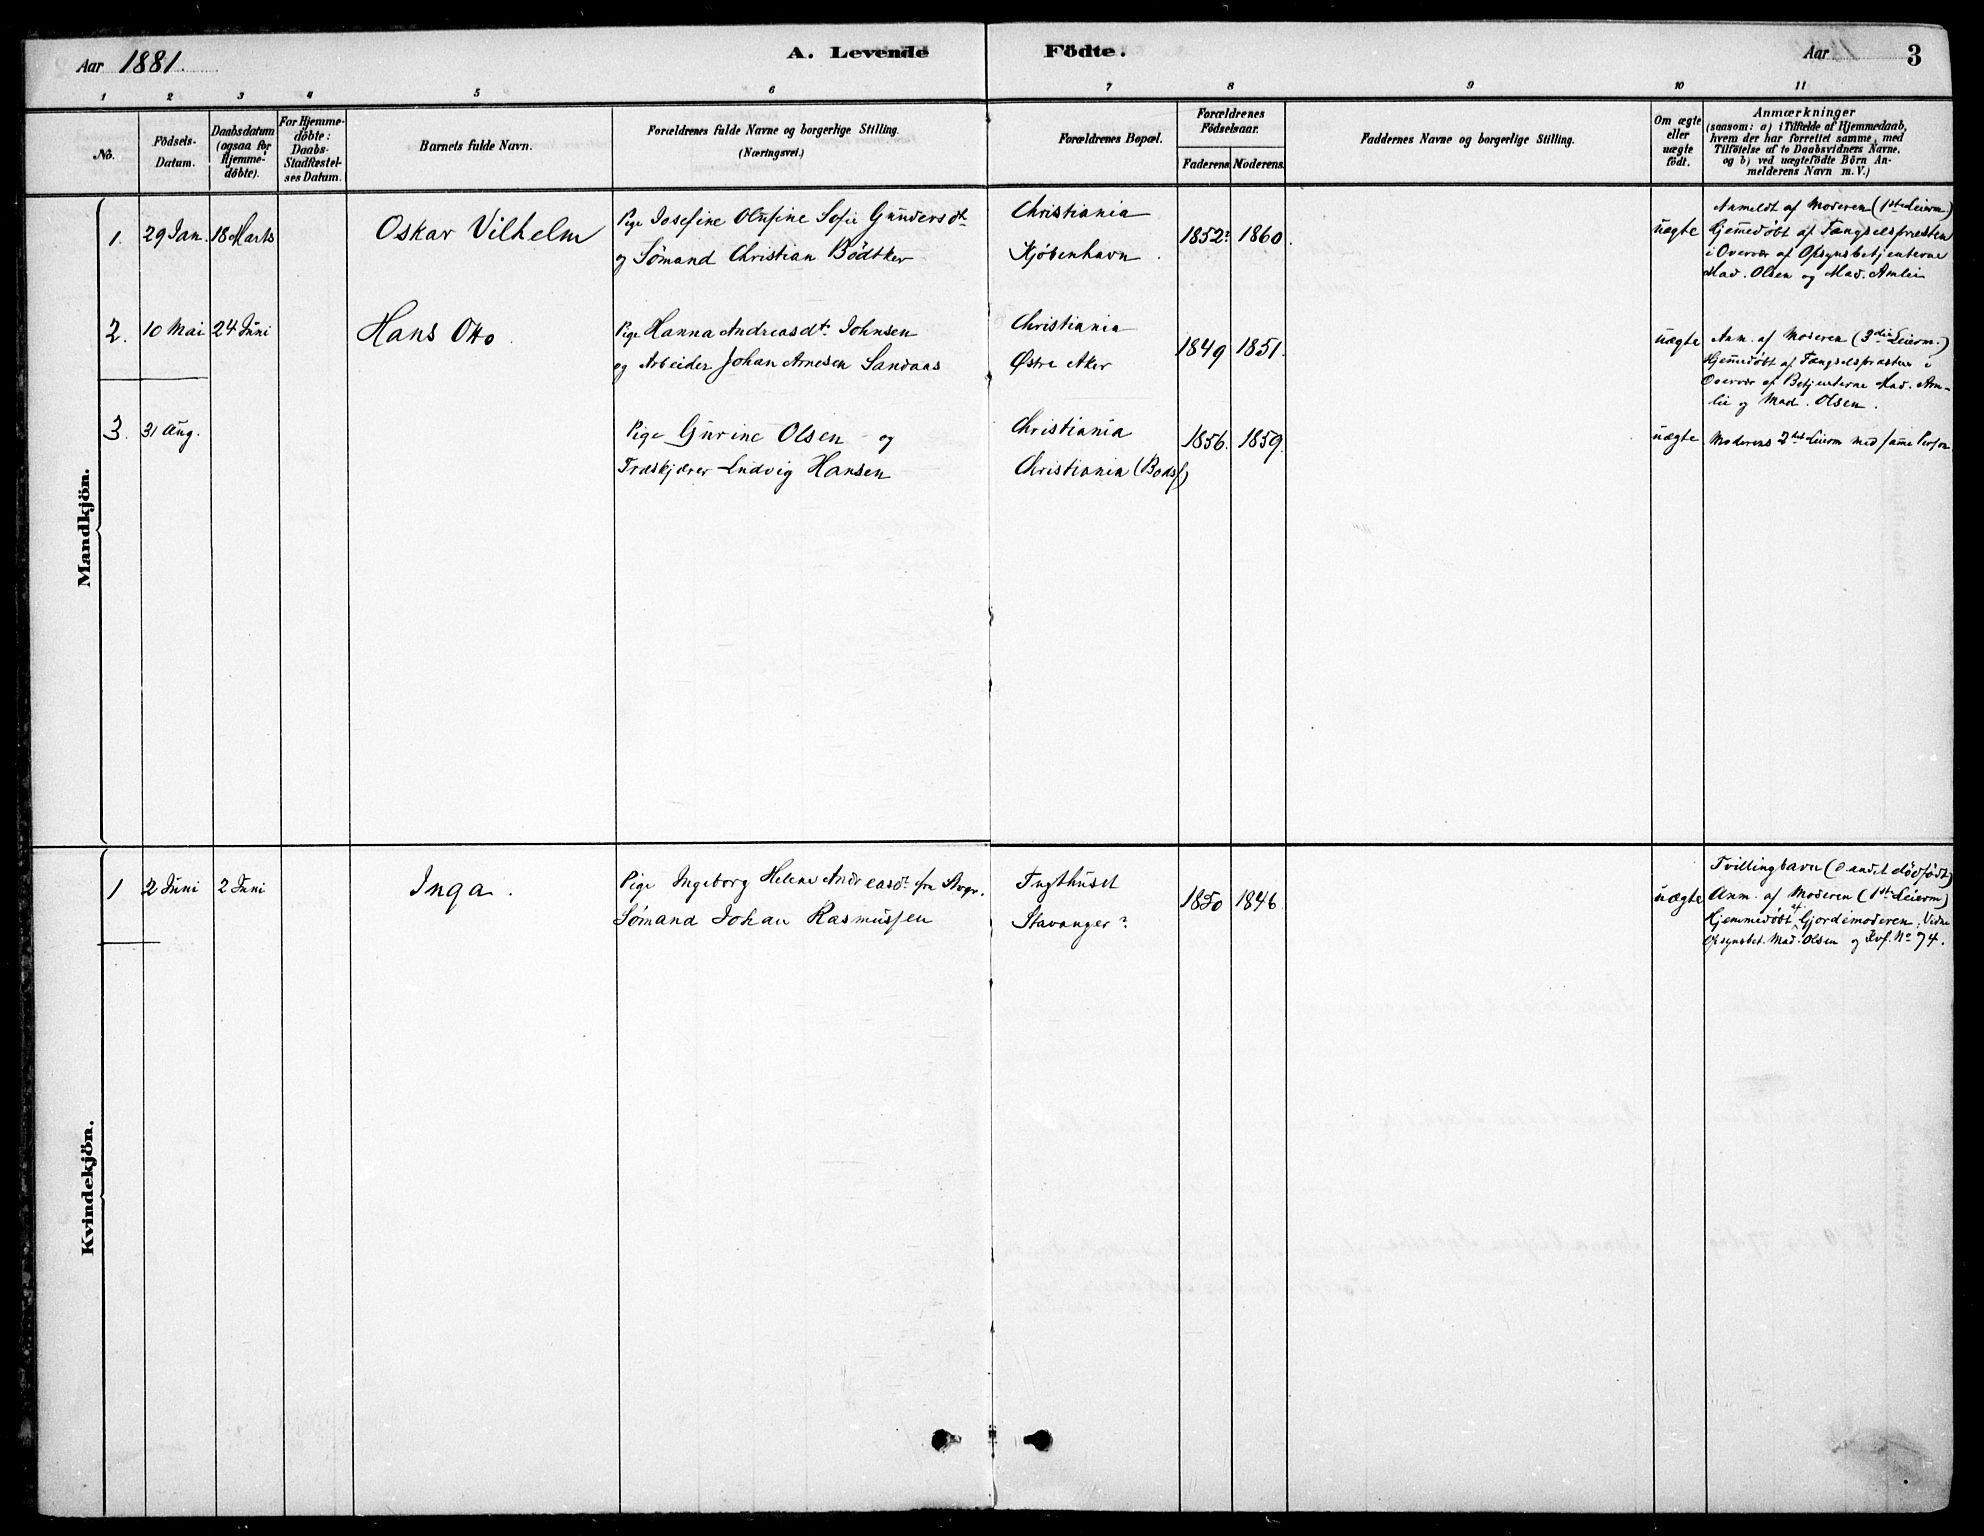 Aar 1881. A. Levende Födte. Aar 3
1 2 3 4 5 6 7 8 9 10 11
No.
Födsels-
Datum.
Daabsdatum
(ogsaa for
Hjemme-
döbte).
For Hjemme-
döbte:
Daabs-
Stadfæstel-
ses Datum.
Barnets fulde Navn.
Forældrenes fulde Navne og borgerlige Stilling.
(Næringsvei.)
Forældrenes Bopæl.
Forældrenes
Födselsaar.
Faderens. Moderens.
Faddernes Navne og borgerlige Stilling.
Om ægte
eller
uægte
födt.
Anmærkninger
(saasom: a) i Tilfælde af Hjemmedaab,
hvem der har forrettet samme, med
Tilföielse af to Daabsvidners Navne,
og b) ved uægtefödte Börn An-
melderens Navn m. V.)
Mandkjön.
1. 29 Jan. 18 Marts Oskar Vilhelm
Pige Josefine Olufine Sofie Gundersdt
og Sømand Christian Bödtker
Christiania
Kjöbenhavn
1852? 1860.
uægte
Anmeldt af Moderen (1ste Leierm.)
Hjemmedøbt af Fængselspræsten
i Overvær af Opsynsbetjenterne
Mad. Olsen og Mad. Amlie
2. 10 Mai 24 Juni Hans Otto.
Pige Hanna Andreasdt. Johnsen
og Arbeider Johan Arnesen Sandaas
Christiania
Østre Aker
1849 1851.
uægte
Anm. af Moderen (3die Leierm.)
Hjemmedøbt af Fængselspræsten i
Overvær af Betjenterne Mad. Am-
lie og Mad. Olsen.
3. 31 Aug.
Pige Gurine Olsen og
Træskjærer Ludvig Hansen
Christiania
Christiania (Bodsf)
1856. 1859.
uægte
Moderens 2det Leierm med samme Person
Kvindekjön.
1 2 Juni 2 Juni Inga.
Pige Ingeborg Helene Andreasdt. fra Stvgr.
Sømand Johan Rasmussen
Tugthuset
Stavanger?
1850 1846
uægte
Tvillingbarn (d andet dödfödt)
Anm. af Moderen (1ste Leierm)
Hjemmedöbt af Gjordemoderen. Vidne
Opsynsbet. Mad. Olsen og Kvf. No 74.